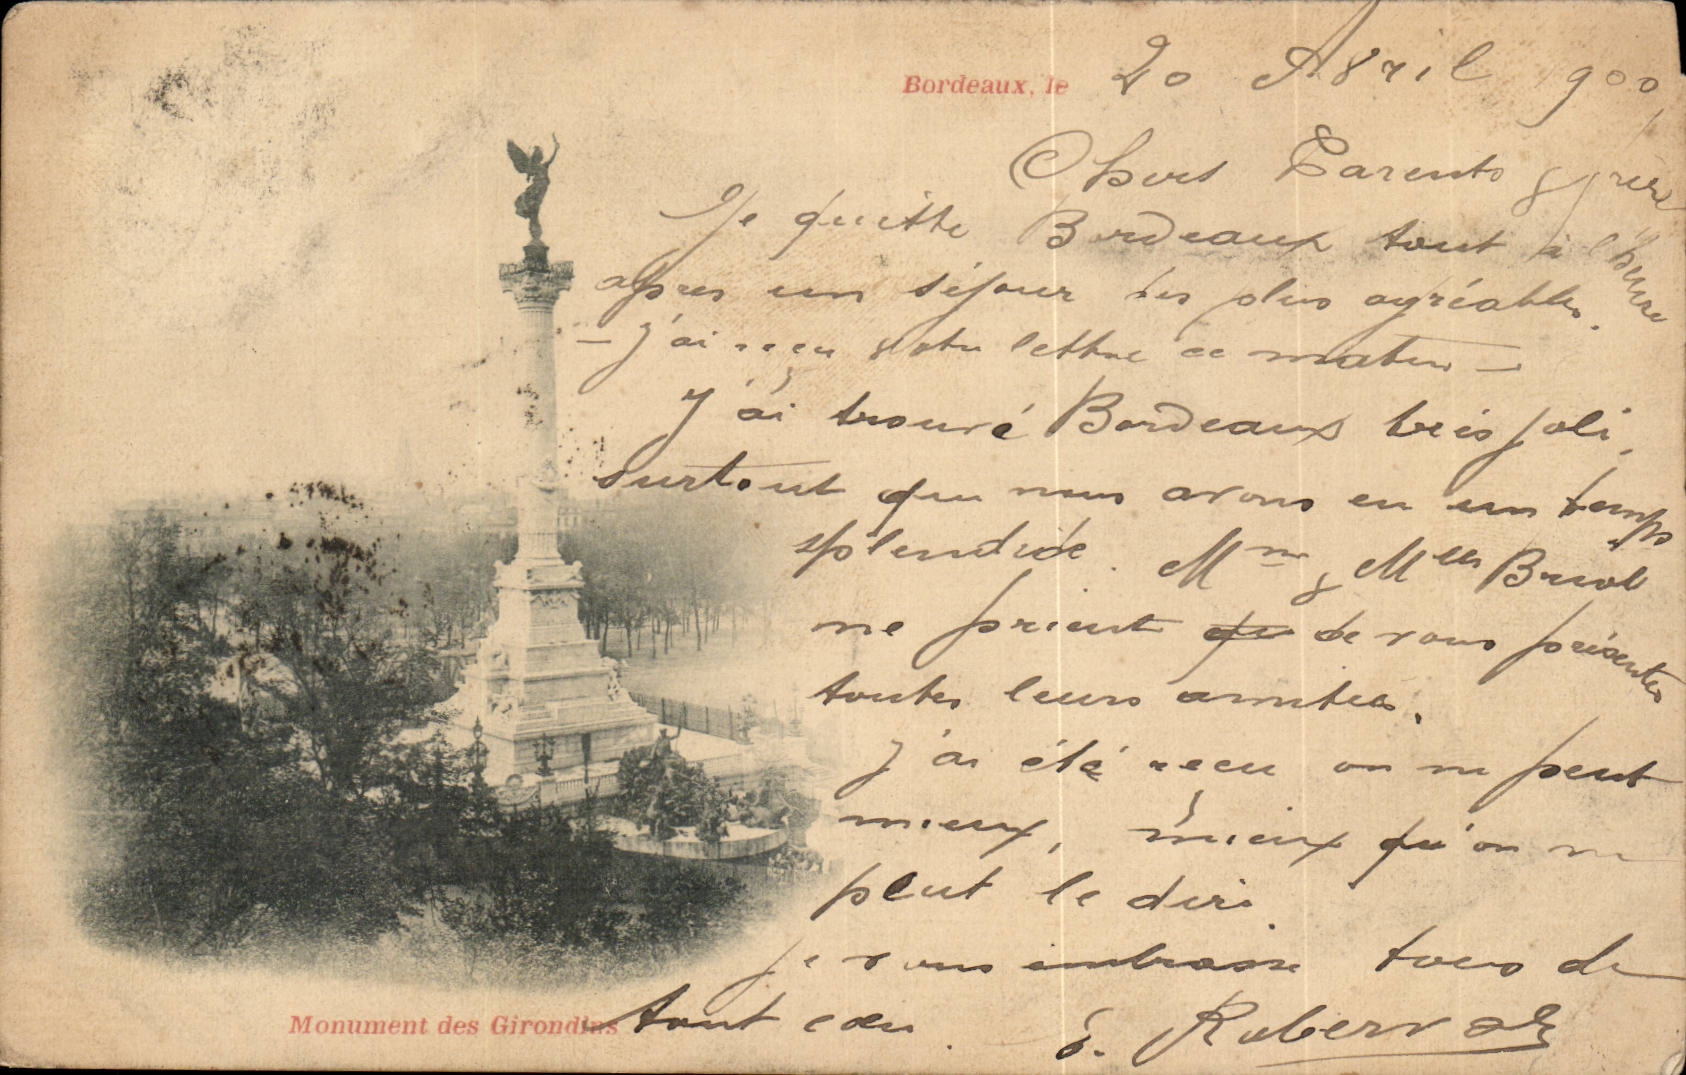 Bordeaux, le 20 Avril 1900
Chers Parents & frère
Je quitte Bordeaux tout à l'heure
apres un séjour des plus agréables.
— J'ai reçu votre lettre ce matin —
J'ai trouvé Bordeaux très joli,
surtout que nous avons eu un temps
splendide. Mme & Melles
me prient de vous présenter
toutes leurs amitiés.
J'ai été reçu on ne peut
mieux, mieux qu'on ne
peut le dire.
Je vous embrasse tous de
tout cœur.
Monument des Girondins